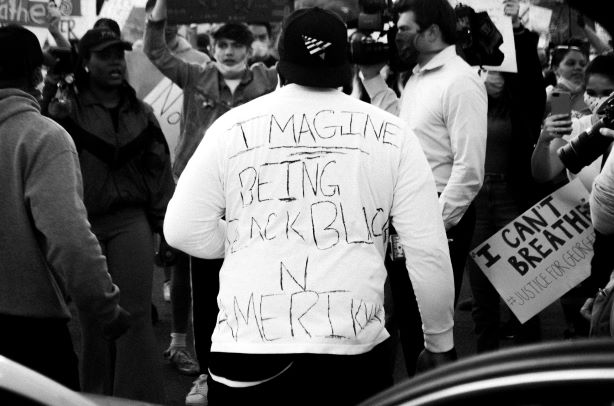 IMAGINE
BEING
BLACK
N
AMERIKKK
I CAN'T
BREATHE
#JUSTICE FOR GEORGE
No